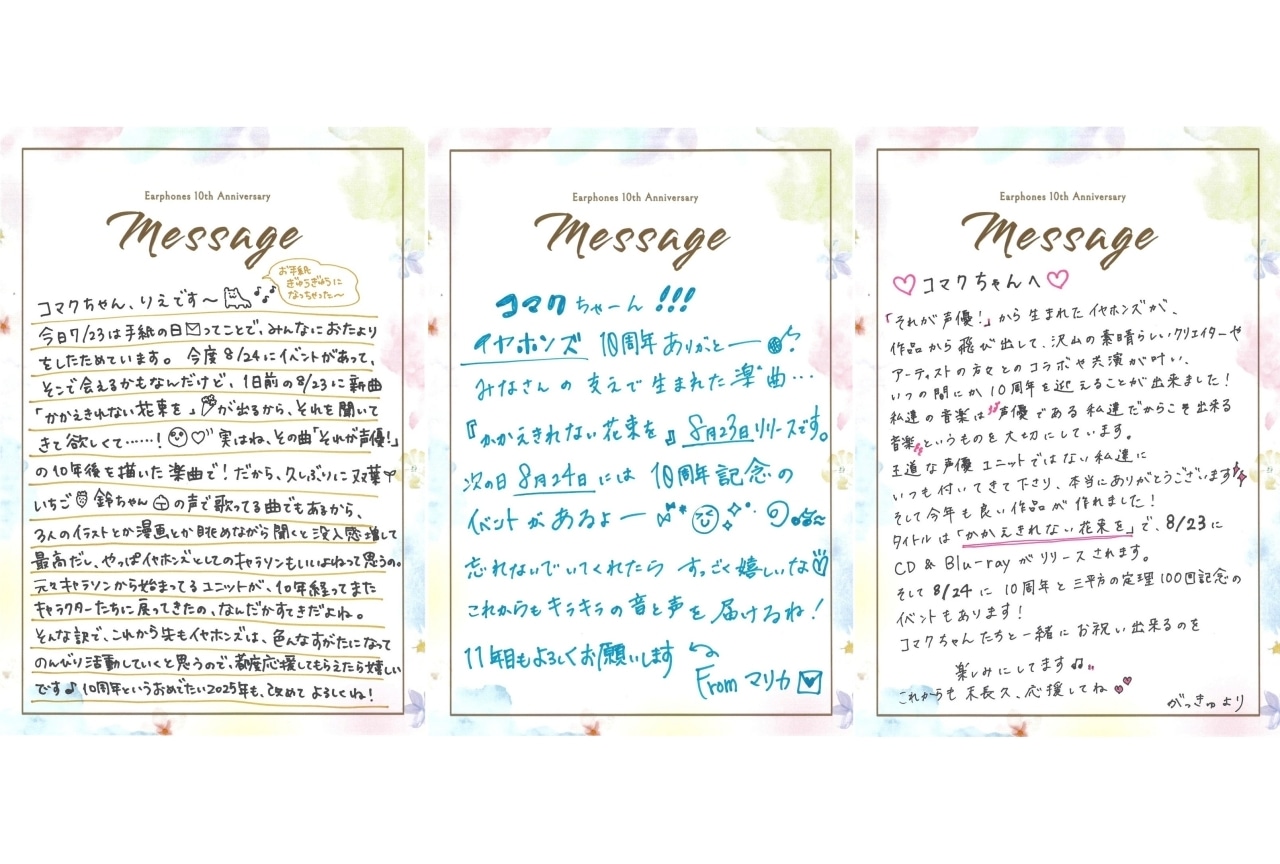 Earphones 10th Anniversary
Message
お手紙
ぎゅうぎゅうに
なっちゃった〜
コマクちゃん、りえです〜
今日7/23は手紙の日ってことで、みんなにおたより
をしたためています。今度8/24にイベントがあって、
そこで会えるかもなんだけど、1日前の8/23に新曲
「かかえきれない花束を」が出るから、それを聞いて
きて欲しくて……!実はね、その曲「それが声優!」
の10年後を描いた楽曲で!だから、久しぶりに双葉
いちご鈴ちゃんの声で歌ってる曲でもあるから、
3人のイラストとか漫画とか眺めながら聞くと没入感増して
最高だし、やっぱイヤホンズとしてのキャラソンもいいよねって思うの。
元々キャラソンから始まってるユニットが、10年経ってまた
キャラクターたちに戻ってきたの、なんだかすてきだよね。
そんな訳で、これから先もイヤホンズは、色んなすがたになって
のんびり活動していくと思うので、都度応援してもらえたら嬉しい
です♪10周年というおめでたい2025年も、改めてよろしくね!
Earphones 10th Anniversary
Message
コマクちゃーん!!!
イヤホンズ 10周年ありがとー
みなさんの支えで生まれた楽曲…
『かかえきれない花束を』8月23日リリースです。
次の日8月24日には10周年記念の
イベントがあるよー
忘れないでいてくれたらすっごく嬉しいな
これからもキラキラの音と声を届けるね!
11年目もよろしくお願いします
From マリカ
Earphones 10th Anniversary
Message
♡コマクちゃんへ♡
「それが声優!」から生まれたイヤホンズが、
作品から飛び出して、沢山の素晴らしいクリエイターや
アーティストの方々とのコラボや共演が叶い、
いつの間にか10周年を迎えることが出来ました!
私達の音楽は"声優である私達だからこそ出来る
音楽"というものを大切にしています。
王道な声優ユニットではない私達に
いつも付いてきて下さり、本当にありがとうございます
そして今年も良い作品が作れました!
タイトルは「かかえきれない花束を」で、8/23に
CD & Blu-rayがリリースされます。
そして8/24に10周年と三平方の定理100回記念の
イベントもあります!
コマクちゃんたちと一緒にお祝い出来るのを
楽しみにしてます♫
これからも末長久、応援してね
がっきゅより